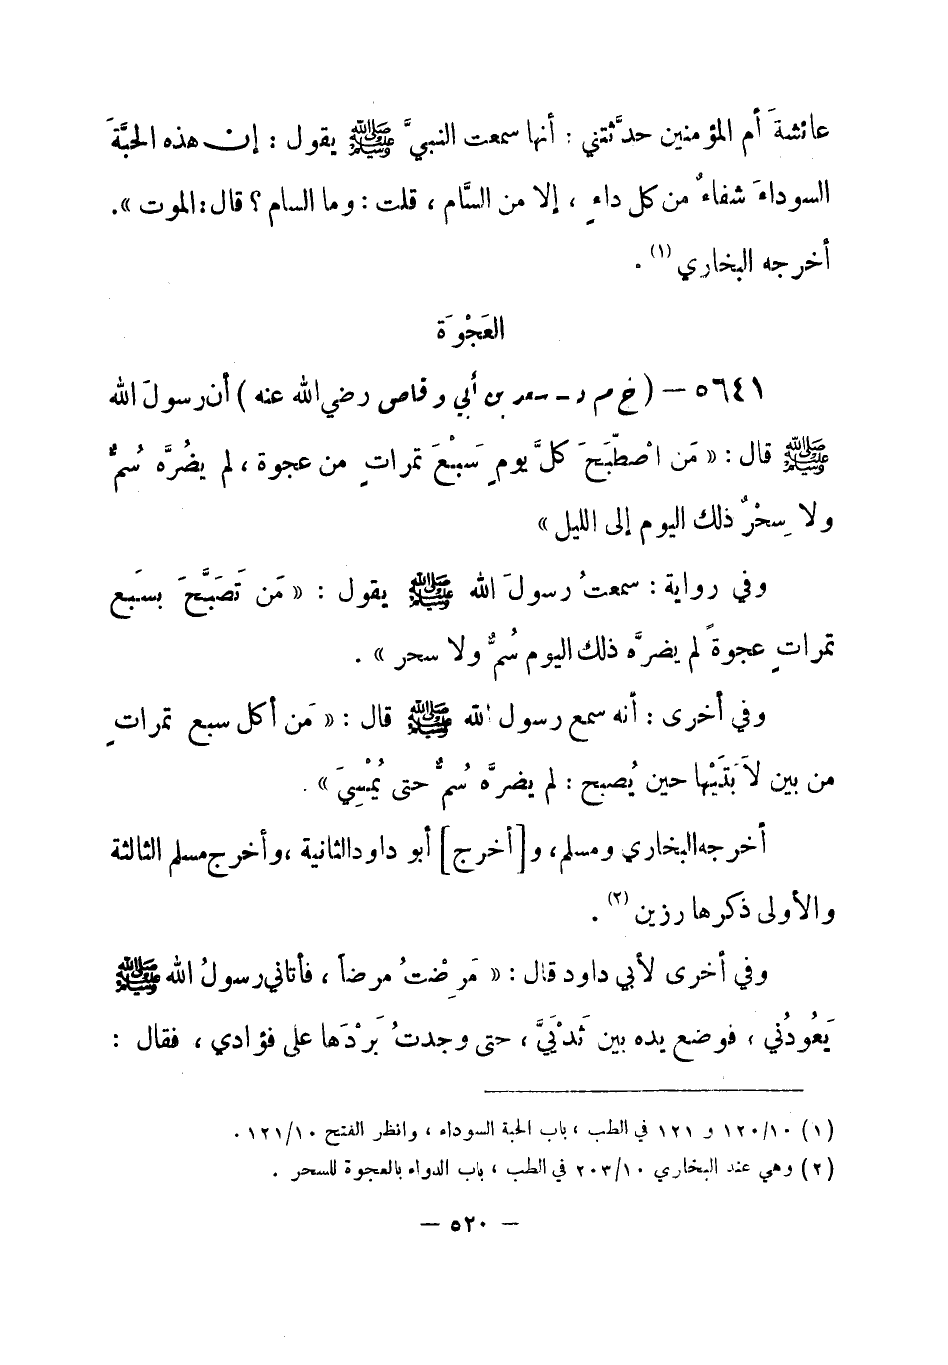 عائشةَ أم المؤمنين حدَّثتني : أنها سمعت النبيَّ ﷺ يقول : إن هذه الحبَّةَ
السوداءَ شفاءٌ من كل داءٍ ، إلا من السَّام ، قلت : وما السام ؟ قال : الموت » .
أخرجه البخاري (١) .
العَجْوَة
٥٦٤١ – ( خ م د – سعد بن أبي وقاص رضي الله عنه ) أن رسولَ الله
ﷺ قال : « مَن اصْطَّبَحَ كلَّ يومٍ سَبْعَ تمراتٍ من عجوة ، لم يضُرَّه سُمٌّ
ولا سِحْرٌ ذلك اليوم إلى الليل »
وفي رواية : سمعتُ رسولَ الله ﷺ يقول : « مَن تَصَبَّحَ بسَبع
تمراتٍ عجوةً لم يضرَّه ذلك اليوم سُمٌّ ولا سحر » .
وفي أخرى : أنه سمع رسول الله ﷺ قال : « مَن أكل سبع تمراتٍ
من بين لاَبَتَيْها حين يُصبح : لم يضرَّه سُمٌّ حتى يُمْسِيَ » .
أخرجه البخاري ومسلم ، و [أخرج] أبو داود الثانية ، وأخرج مسلم الثالثة
والأولى ذكرها رزين (٢) .
وفي أخرى لأبي داود قال : « مَرِضْتُ مرضاً ، فأتاني رسولُ الله ﷺ
يَعُودُني ، فوضع يده بين ثَدْيَيَّ ، حتى وجدتُ بَرْدَها على فؤادي ، فقال :
(١) ١٢٠/١٠ و ١٢١ في الطب ، باب الحبة السوداء ، وانظر الفتح ١٢١/١٠ .
(٢) وهي عند البخاري ٢٠٣/١٠ في الطب ، باب الدواء بالعجوة للسحر .
– ٥٢٠ –